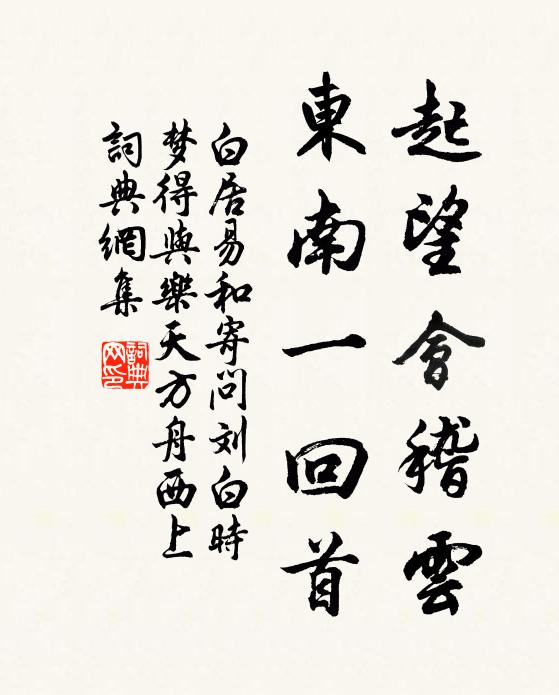 起望會稽雲
東南一回首
白居易和寄问刘白時
梦得與樂天方舟西上
詞典網集
詞典
网印